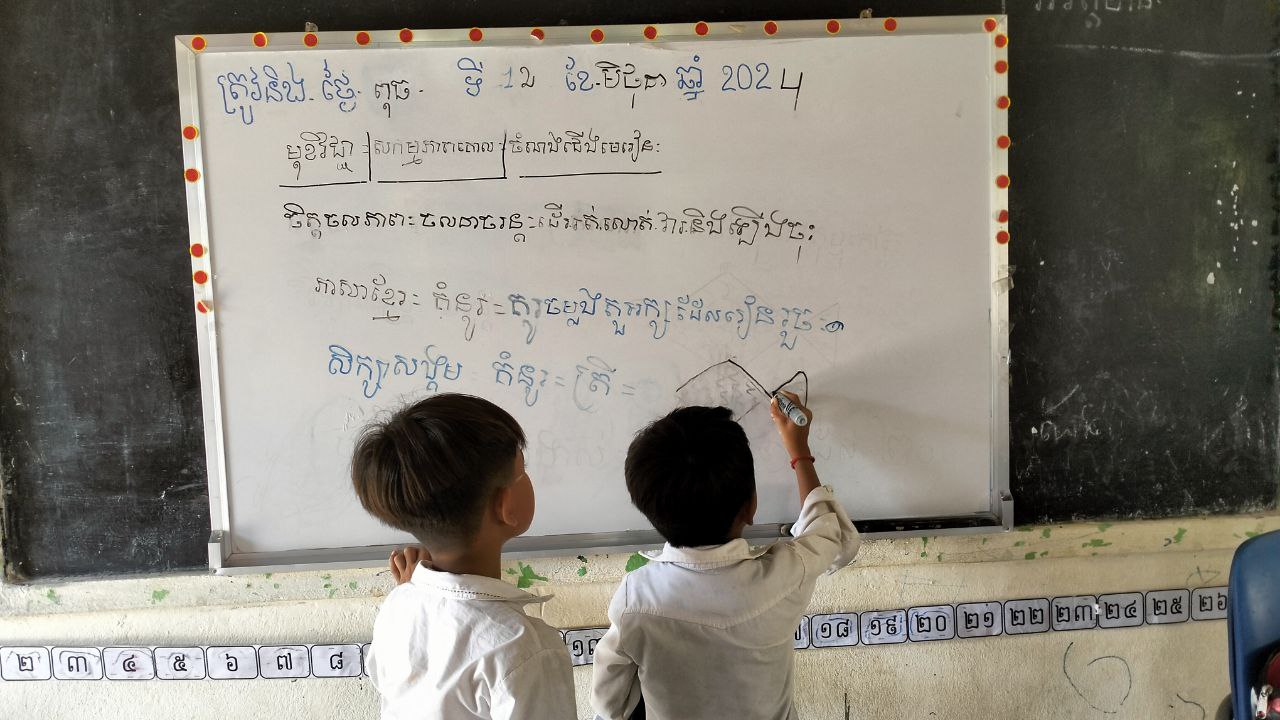 ត្រូវនិង ថ្ងៃ ពុធ ទី 12 ខែ មិថុនា ឆ្នាំ 2024
មុខវិជ្ជា សកម្មភាពគោល ចំណងជើងមេរៀន:
ចិត្តចលភាព: ចលនាចរន្ត: ដើររត់លោត វារនិងឡើងចុះ
ភាសាខ្មែរ: គំនូរ = គូរចម្លងតួអក្សដែលរៀនរួច:
សិក្សាសង្គម គំនូរ = ត្រី =
២ ៣ ៤ ៥ ៦ ៧ ៨ ១៨ ១៩ ២០ ២១ ២២ ២៣ ២៤ ២៥ ២៦